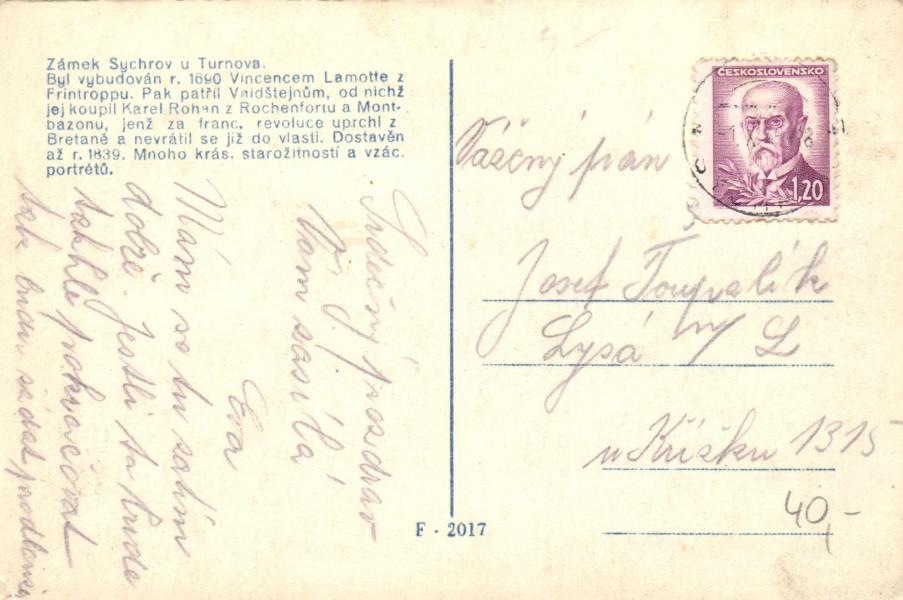 Zámek Sychrov u Turnova.
Byl vybudován r. 1690 Vincencem Lamotte z
Frintroppu. Pak patřil Valdštejnům, od nichž
jej koupil Karel Rohan z Rochenfortu a Mont-
bazonu, jenž za franc. revoluce uprchl z
Bretaně a nevrátil se již do vlasti. Dostavěn
až r. 1839. Mnoho krás. starožitností a vzác.
portrétů.
Srdečný pozdrav
Vám
Eva
Mám se tu
dobře. Jestli to bude
takhle pokračovat
tak budu žádat
F - 2017
ČESKOSLOVENSKO
1,20
Vážený pán
Josef
Lysá n/L
u Křížku 1315
40,-